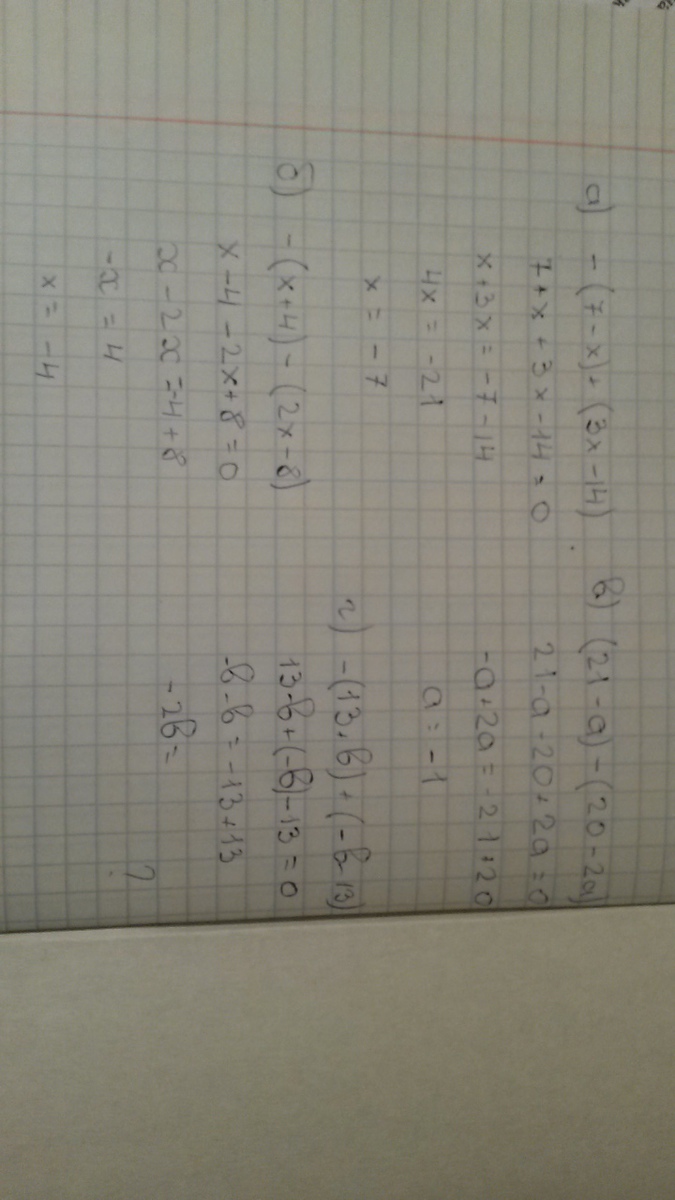 а) - (7 - x) + (3x - 14)
7 + x + 3x - 14 = 0
x + 3x = - 7 - 14
4x = - 21
x = - 7
б) - (x + 4) - (2x - 8)
x - 4 - 2x + 8 = 0
x - 2x = -4 + 8
-x = 4
x = - 4
в) (21 - a) - (20 - 2a)
21 - a - 20 + 2a = 0
-a + 2a = - 21 + 20
a = - 1
г) - (13 + b) + (- b - 13)
13 - b + (-b) - 13 = 0
-b - b = - 13 + 13
- 2b =
?